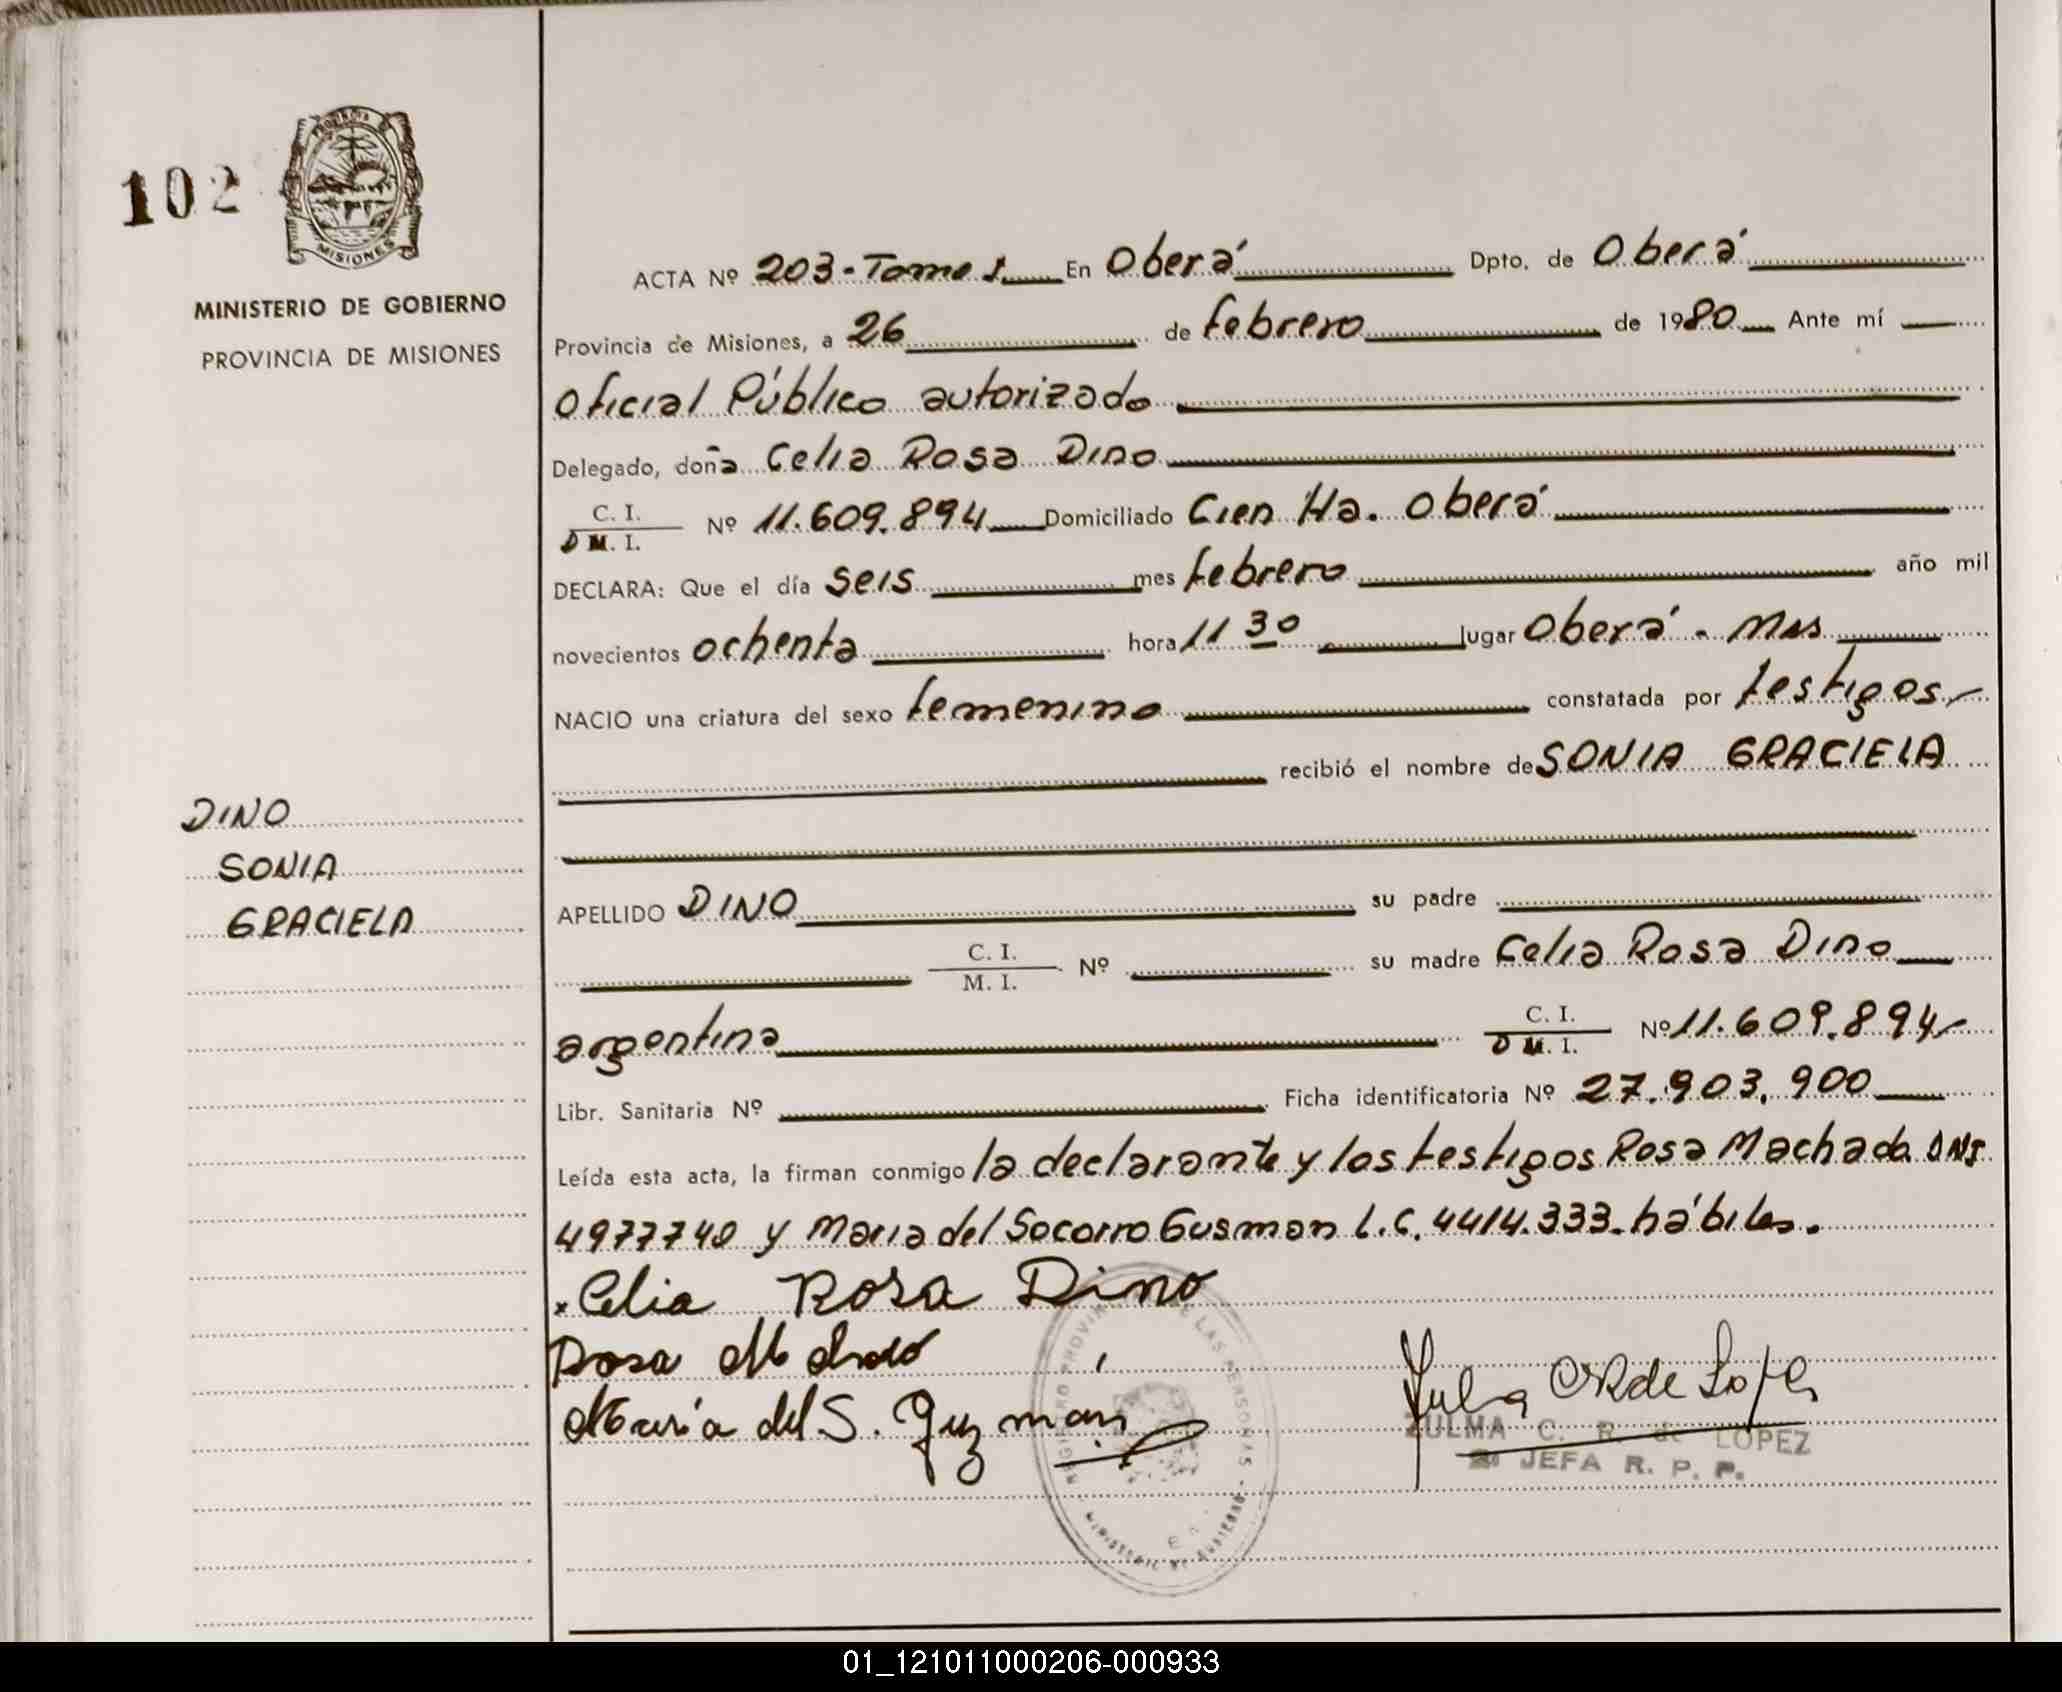 102
PROVINCIA DE
MISIONES
MINISTERIO DE GOBIERNO
PROVINCIA DE MISIONES
DINO
SONIA
GRACIELA
ACTA Nº 203-Tomo I En Oberá Dpto. de Oberá
Provincia de Misiones, a 26 de febrero de 1980 Ante mí
Oficial Público autorizado
Delegado, doña Celia Rosa Dino
C. I.
D M. I. Nº 11.609.894 Domiciliado Cien Ha. Oberá
DECLARA: Que el día seis mes febrero año mil
novecientos ochenta hora 11 30 lugar Oberá - Mns
NACIO una criatura del sexo femenino constatada por testigos
recibió el nombre de SONIA GRACIELA
APELLIDO DINO su padre
C. I.
M. I. Nº su madre Celia Rosa Dino
argentina C. I.
D M. I. Nº 11.609.894
Libr. Sanitaria Nº Ficha identificatoria Nº 27.903.900
Leída esta acta, la firman conmigo la declarante y los testigos Rosa Machado DNI
4977740 y Maria del Socorro Gusman L.C. 4414.333. hábiles.
x Celia Rosa Dino
Rosa
María del S. Guzmán
REGISTRO PROVINCIAL DE LAS PERSONAS
MINISTERIO DE GOBIERNO
ZULMA C. R. de LOPEZ
JEFA R. P. P.
01_121011000206-000933